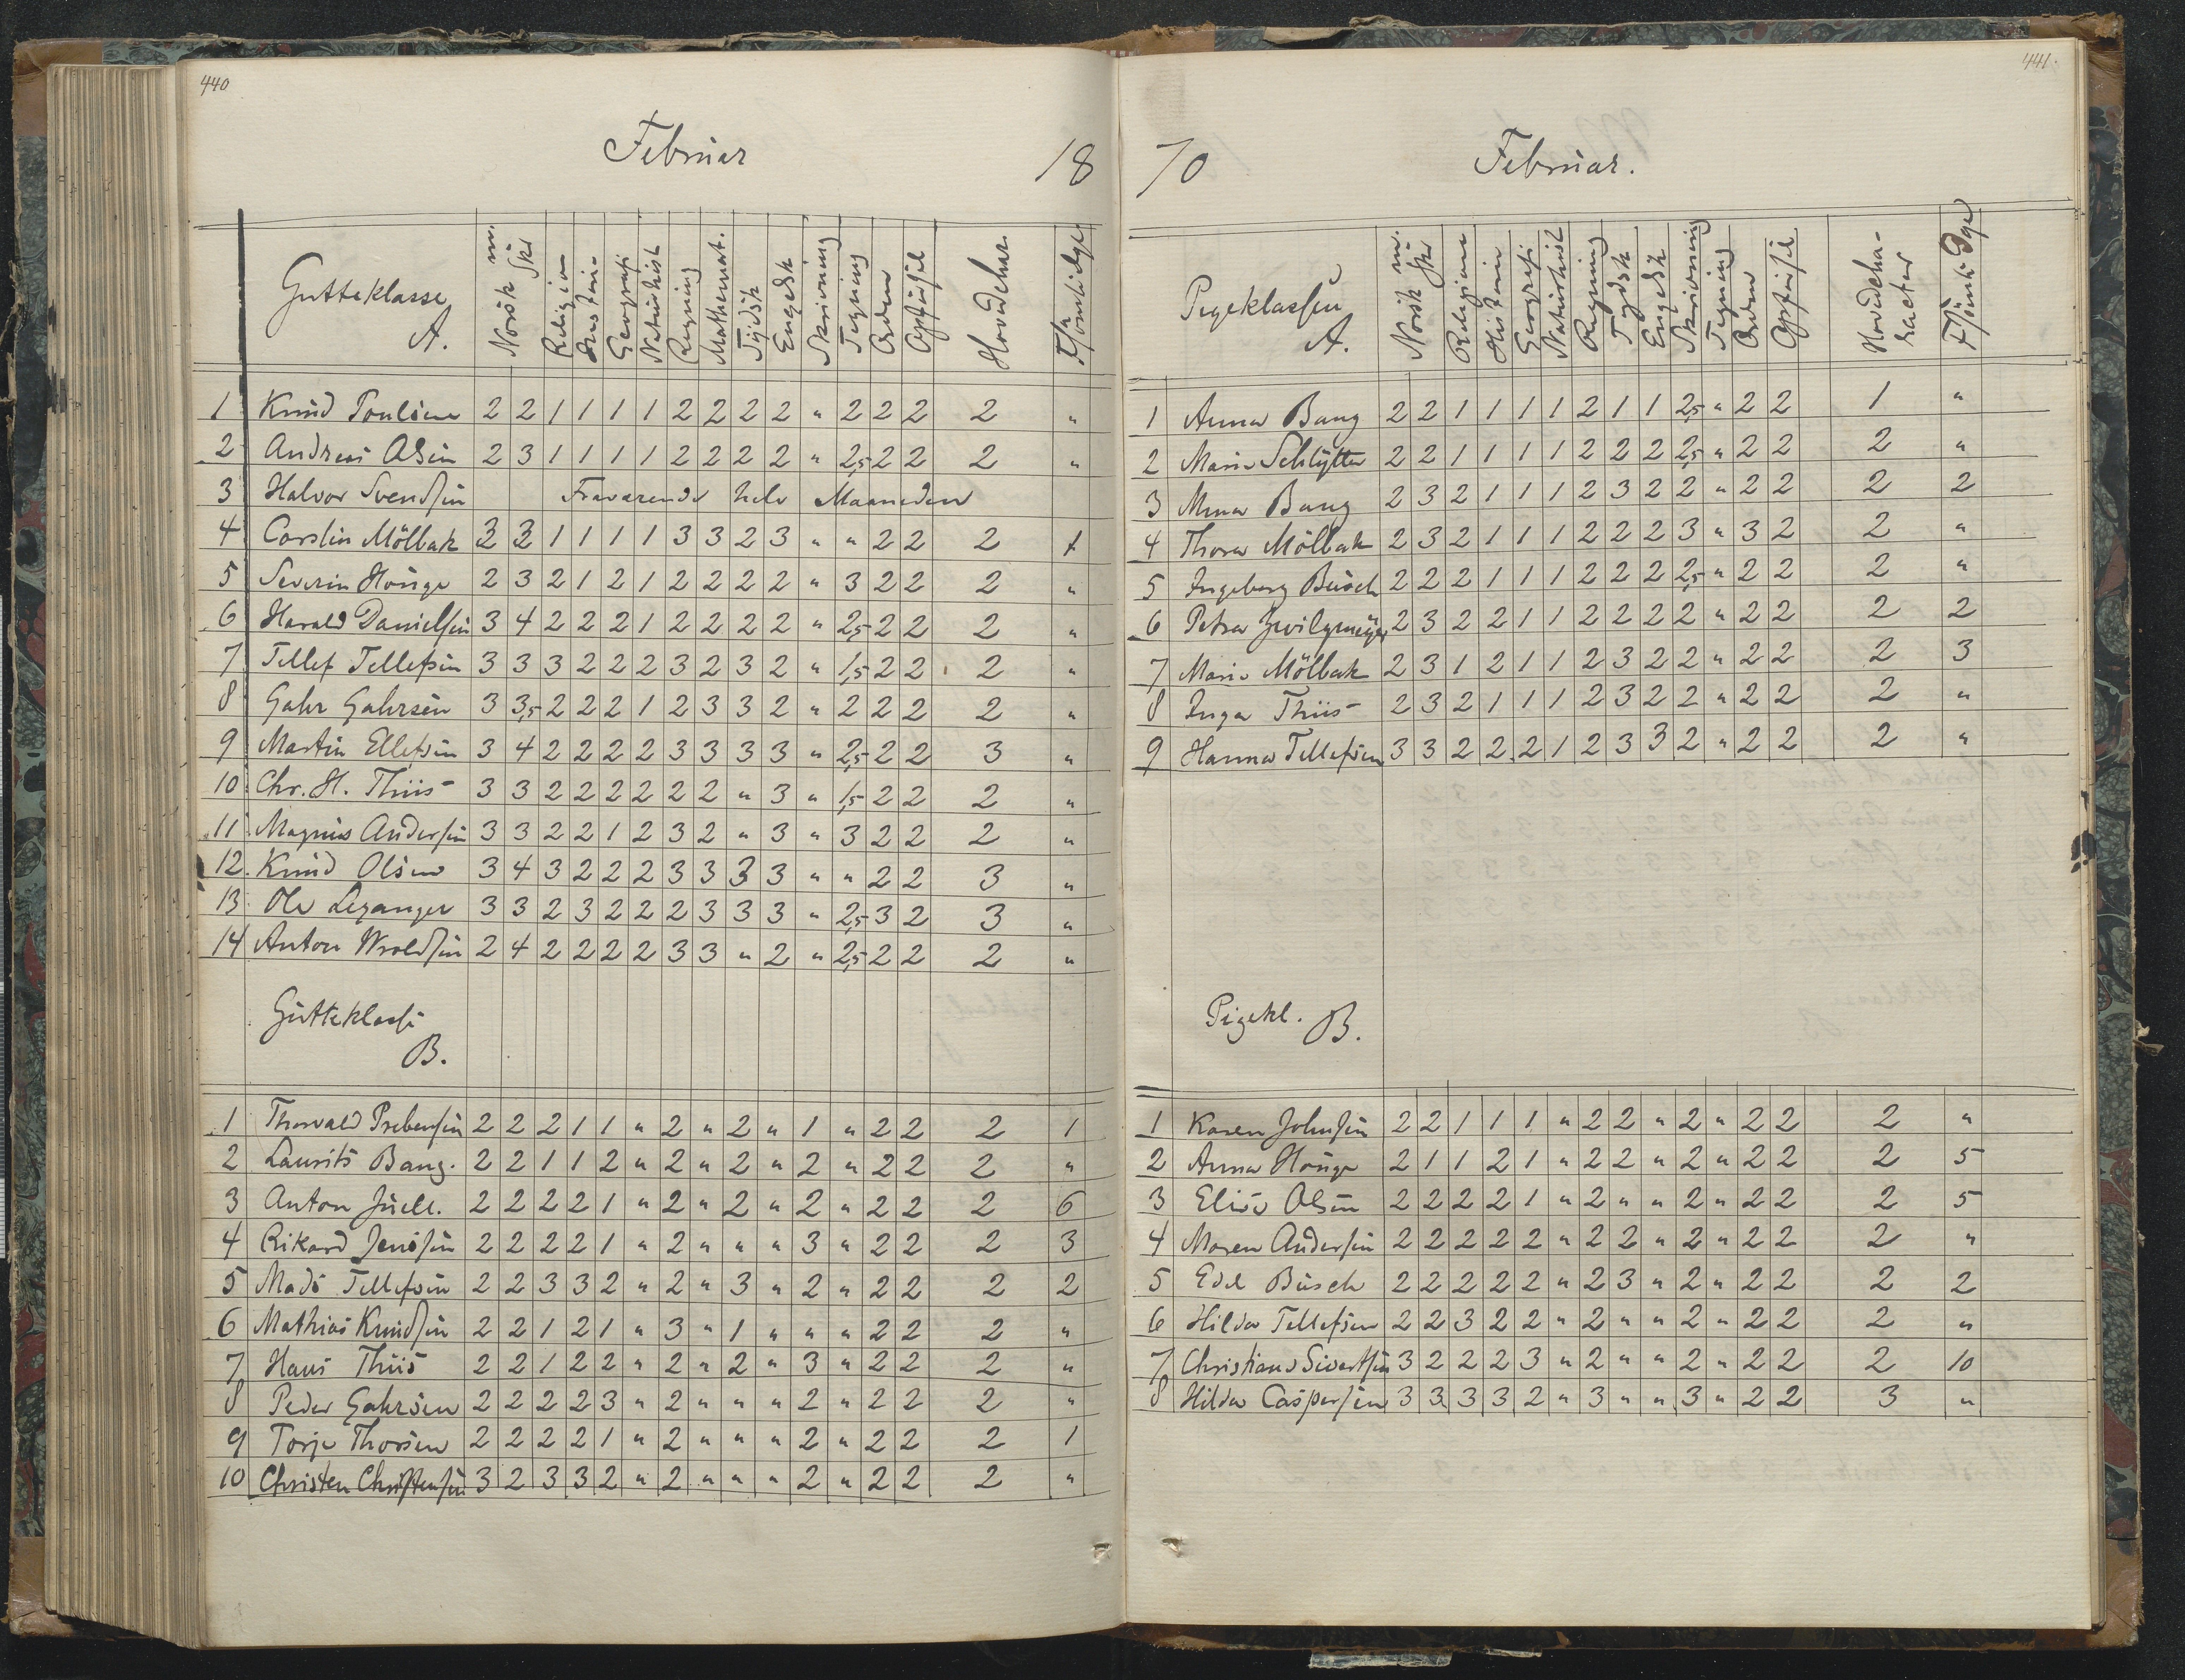 440
Februar 18
Gutteklasse A. Norsk m. Skr Religion Historie Geografi Naturhist Regning Mathemat. Tydsk Engelsk Skrivning Tegning Orden Opførsel Hovedchar. Forsømte Dge
1 Knud Poulsen 2 2 1 1 1 1 2 2 2 2 " 2 2 2 2 "
2 Andreas Olsen 2 3 1 1 1 1 2 2 2 2 " 2,5 2 2 2 "
3 Halvor Svendsen Fraværende hele Maaneden
4 Carsten Mölbak 3 3 1 1 1 1 3 3 2 3 " " 2 2 2
5 Severin Houge 2 3 2 1 2 1 2 2 2 2 " 3 2 2 2 "
6 Harald Danielsen 3 4 2 2 2 1 2 2 2 2 " 2,5 2 2 2 "
7 Tellef Tellefsen 3 3 3 2 2 2 3 2 3 2 " 1,5 2 2 2 "
8 Gahr Gahrsen 3 3,5 2 2 2 1 2 3 3 2 " 2 2 2 2 "
9 Martin Ellefsen 3 4 2 2 2 2 3 3 3 3 " 2,5 2 2 3 "
10 Chr. H. Thiis 3 3 2 2 2 2 2 2 " 3 " 1,5 2 2 2 "
11 Magnus Andersen 3 3 2 2 1 2 3 2 " 3 " 3 2 2 2 "
12. Knud Olsen 3 4 3 2 2 2 3 3 3 3 " " 2 2 3 "
13 Ole Leganger 3 3 2 3 2 2 2 3 3 3 " 2,5 3 2 3 "
14 Anton Wroldsen 2 4 2 2 2 2 3 3 " 2 " 2,5 2 2 2 "
Gutteklasse B.
1 Thorvald Prebensen 2 2 2 1 1 " 2 " 2 " 1 " 2 2 2 1
2 Laurits Bang. 2 2 1 1 2 " 2 " 2 " 2 " 2 2 2 "
3 Anton Juell. 2 2 2 2 1 " 2 " 2 " 2 " 2 2 2 6
4 Rikard Jenssen 2 2 2 2 1 " 2 " " " 3 " 2 2 2 3
5 Mads Tellefsen 2 2 3 3 2 " 2 " 3 " 2 " 2 2 2 2
6 Mathias Knudsen 2 2 1 2 1 " 3 " 1 " " " 2 2 2 "
7 Hans Thiis 2 2 1 2 2 " 2 " 2 " 3 " 2 2 2 "
8 Peder Gahrsen 2 2 2 2 3 " 2 " " " 2 " 2 2 2 "
9 Torje Thorsen 2 2 2 2 1 " 2 " " " 2 " 2 2 2 1
10 Christen Christensen 3 2 3 3 2 " 2 " " " 2 " 2 2 2 "
441.
70 Februar.
Pigeklassen A. Norsk m. Skr Religion Historie Geografi Naturhist Regning Tydsk Engelsk Skrivning Tegning Orden Opførsel Hovedcha-racter Forsömte Dage
1 Anna Bang 2 2 1 1 1 1 2 1 1 2,5 " 2 2 1 "
2 Marie Schlytter 2 2 1 1 1 1 2 2 2 2,5 " 2 2 2 "
3 Mina Bang 2 3 2 1 1 1 2 3 2 2 " 2 2 2 2
4 Thora Mölbak 2 3 2 1 1 1 2 2 2 3 " 3 2 2 "
5 Ingeborg Busch 2 2 2 1 1 1 2 2 2 2,5 " 2 2 2 "
6 Petra Zwilgmeyer 2 3 2 2 1 1 2 2 2 2 " 2 2 2 2
7 Marie Mölbak 2 3 1 2 1 1 2 3 2 2 " 2 2 2 3
8 Inga Thiis 2 3 2 1 1 1 2 3 2 2 " 2 2 2 "
9 Hanna Tellefsen 3 3 2 2 2 1 2 3 3 2 " 2 2 2 "
Pigekl. B.
1 Karen Johnsen 2 2 1 1 1 " 2 2 " 2 " 2 2 2 "
2 Anna Houge 2 1 1 2 1 " 2 2 " 2 " 2 2 2 5
3 Elise Olsen 2 2 2 2 1 " 2 " " 2 " 2 2 2 5
4 Maren Andersen 2 2 2 2 2 " 2 2 " 2 " 2 2 2 "
5 Edel Busch 2 2 2 2 2 " 2 3 " 2 " 2 2 2 2
6 Hilda Tellefsen 2 2 3 2 2 " 2 " " 2 " 2 2 2 "
7 Christiane Sivertsen 3 2 2 2 3 " 2 " " 2 " 2 2 2 10
8 Hilda Caspersen 3 3 3 3 2 " 3 " " 3 " 2 2 3 "